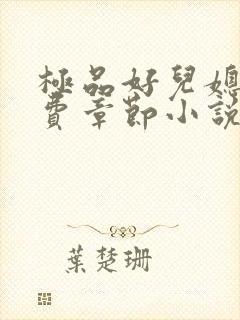 極品好兒媳
費章節小說
葉楚珊